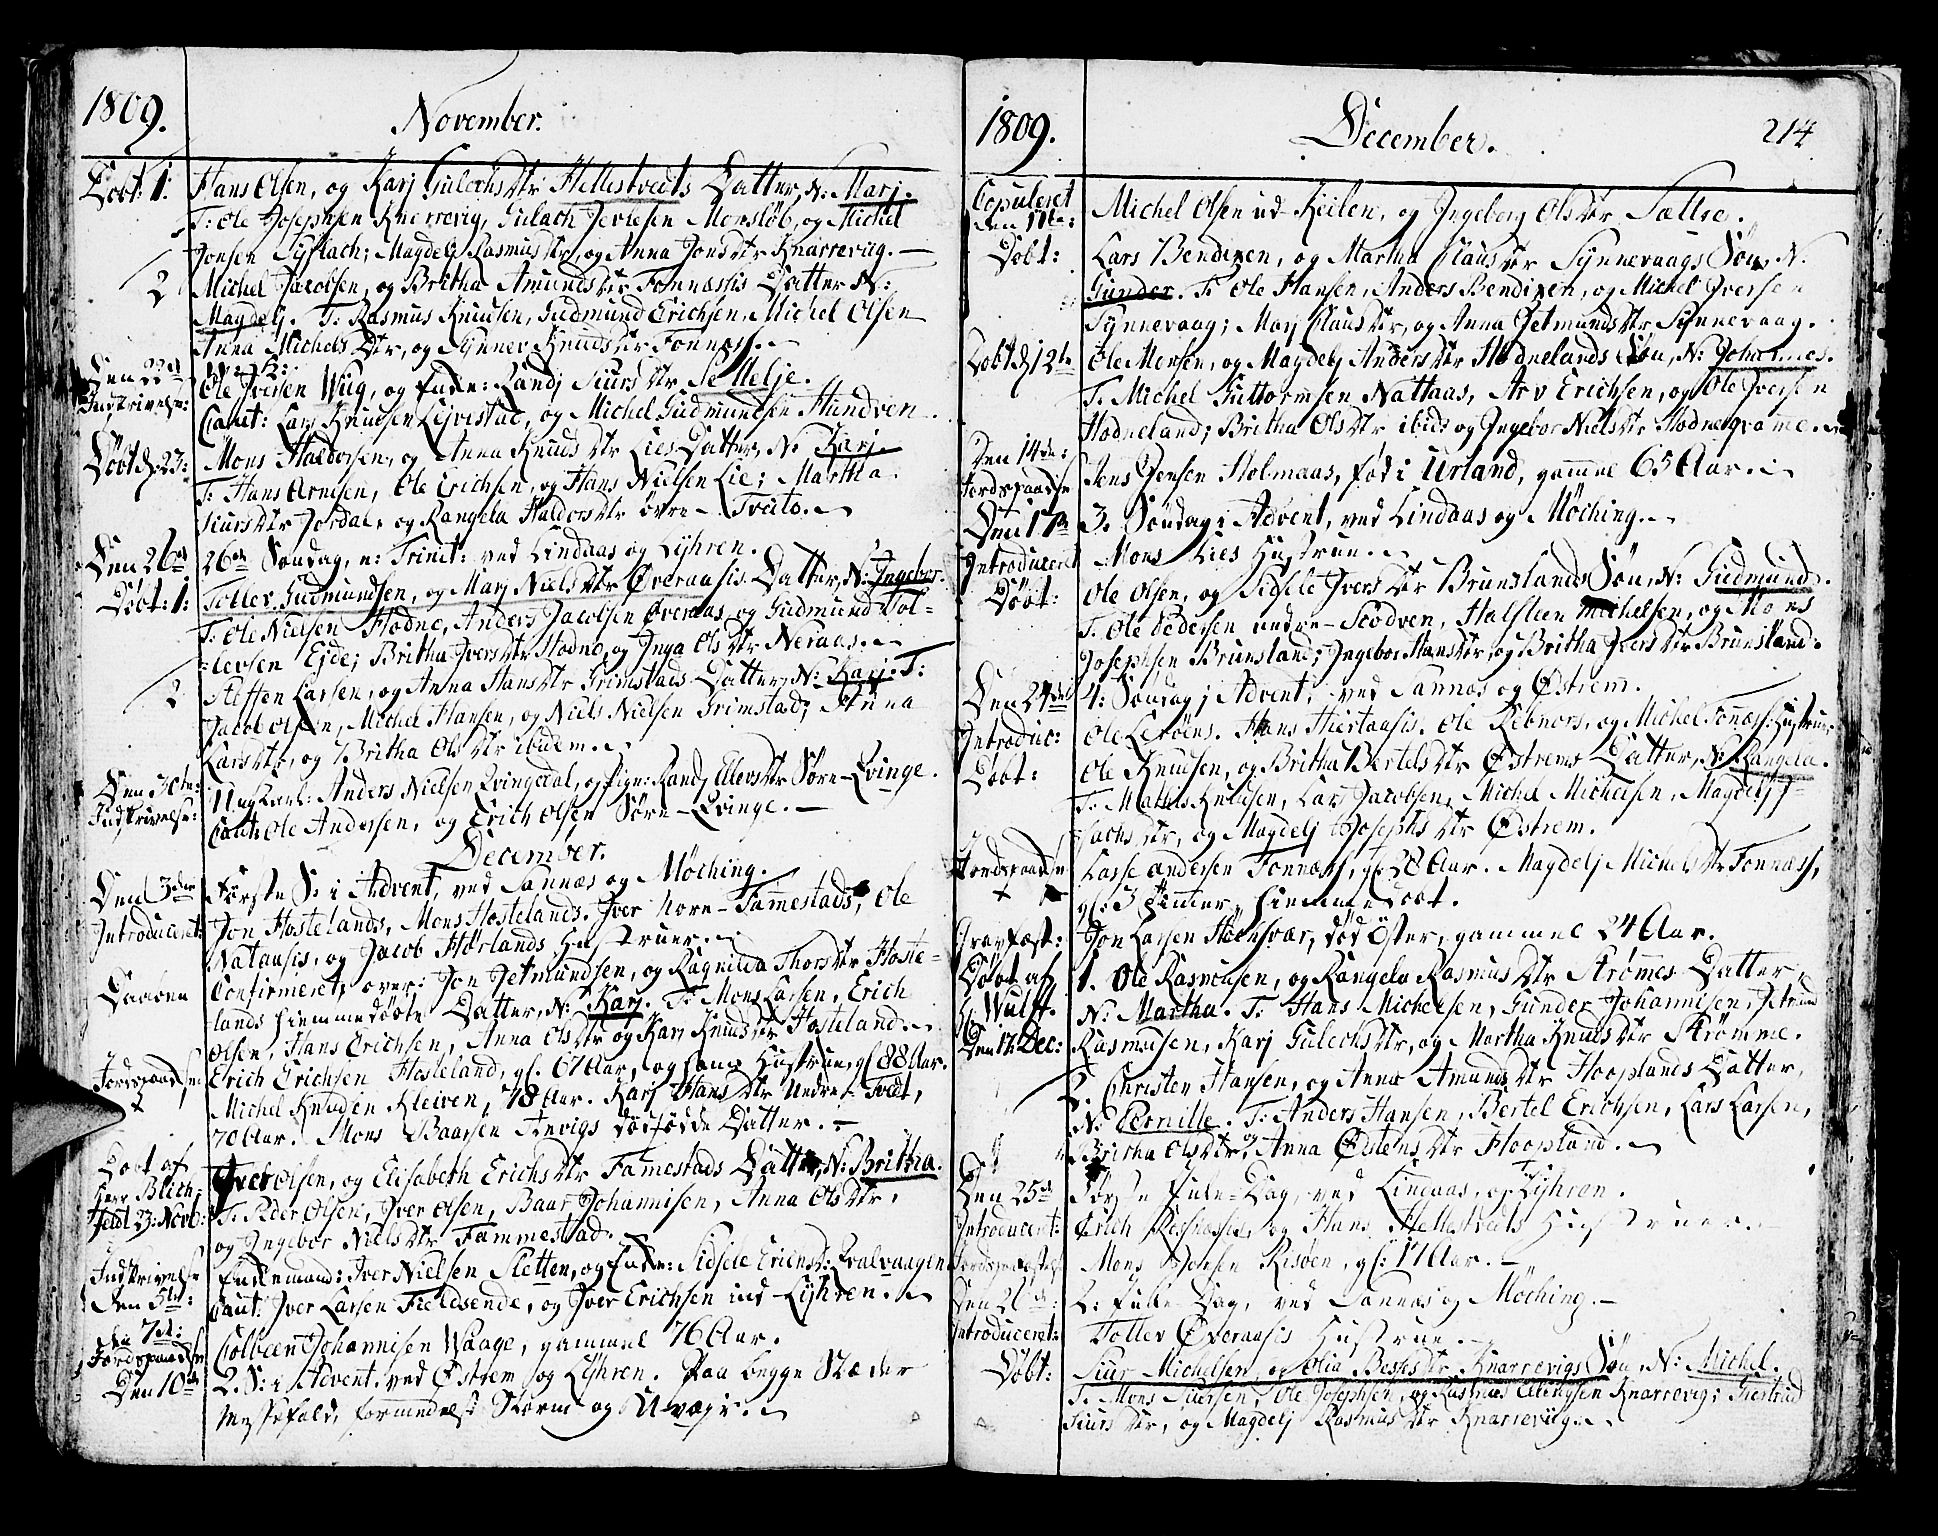 1809.
November.
Døbt: 1. Hans Olsen, og Karj Gulechsdtr Hellestvedts Datter, N: Marj.
T: Ole Josephsen Knarrevig, Gulach Jversen Monsløb, og Michel
Jonsen Syslach; Magdelj Rasmusdtr, og Anna Jonsdtr Knarrevug.
2 Michel Jacobsen, og Britha Amundsdtr Fonnæssis Datter N:
Magdelj. T: Rasmus Knudsen, Gudmund Erichsen, Michel Olsen
Anna Michelsdtr, og Synnev Knudsdtr Fonnæss.
Den 22de
Indskrivelse: Ole Jversen Wiig, og Enke: Randj Siursdtr Sellelje.
Caut: Lars Knudsen Lervestad, og Michel Gudmundsen Hundven.
Døbt d. 23: Mons Haldorsen, og Anna Knudsdtr Lies Datter, N. Karj.
T: Hans Arnesen, Ole Erichsen, og Hans Nielsen Lie; Martha
Siursdtr Jordal, og Rangela Haldorsdtr øvre-Tveito.
Den 26de 26de Søndag, n: Trinit: ved Lindaas og Lyhren.
Døbt: 1: Tollev Gudmundsen, og Marj Nielsdtr Øveraasis Datter, N: Ingebor.
T: Ole Nielsen Hodne, Anders Jacobsen Øveraas, og Gudmund Tol-
-levsen Ejde; Britha Jversdtr Hodne, og Jnga Olsdtr Neraas.
2 Steffen Larsen, og Anna Hansdtr Grimstads Datter, N: Karj. T:
Jacob Olsen, Michel Hansen, og Niels Nielsen Grimstad; Anna
Larsdtr, og Britha Olsdtr ibidem.
Den 30te:
Indskrivelse: Ungkarl: Anders Nielsen Qvingedal, og Pige: Randj Ellevsdtr Søre-Qvinge.
Caut: Ole Andersen, og Erich Olsen Søre-Qvinge.
December.
Den 3die Første S: i Advent, ved Sannæs og Møching.
Introduceret: Jon Hostelands, Mons Hostelands, Jver Nore-Fammestads, Ole
Nataasis, og Jacob Hørlands Hustruer.
Daaben Confirmeret, over: Jon Jetmundsen, og Ragnilda Thorsdtr Hoste-
lands hiemmedøbte Datter, N: Karj. T: Mons Larsen, Erich
Olsen, Hans Erichsen, Anna Olsdtr og Karj Knudsdtr Hosteland.
Jordspaadsn Erich Erichsen Hosteland, gl. 67 Aar, og hans Hustrue, gl 88 Aar.
Michel Knudsen Kleiven, 78 Aar. Karj Hansdtr Nedre-Tvedt,
70 Aar. Mons Baarsen Anvigs dødfødde Datter.
Døbt af
Herr Blich-
feldt 23: Novb: Jver Olsen, og Elisabeth Erichsdtr Famestads Datter, N: Britha.
T: Peder Olsen, Jver Olsen, Baar Johannesen, Anna Olsdtr,
og Jngebor Nielsdtr Fammestad.
Indskrivelse
den 5te: Enkemand: Jver Nielsen Sletten, og Enke: Sidsele Ericsd: Qvalvaagen
Caut: Jver Larsen Fieldsende, og Jver Erichsen ind-Lyhren.
Den 7de:
Jordspaadsn Colbeen Johannesen Waage, gammel 76 Aar.
Den 10de 2. S: i Advent, ved Østrem og Lyhren. Paa begge Stæder
Messefald, formedelst Storm og Uvejr.
1809.
December.
214
Copuleret
den 11te: Michel Olsen ud-Keilen, og Jngeborg Olsdtr Sættre.
Døbt: Lars Bendixen, og Martha Clausdtr Synnevaags Søn, N.
Gunder. T: Ole Hansen, Anders Bendixen, og Michel Jversen
Synnevaag; Marj Clausdtr, og Anna Jetmundsdtr Synnevaag.
Døbt d. 12te Ole Monsen, og Magdelj Andersdtr Hodnelands Søn, N. Johannes.
T. Michel Guttormsen Nattaas, Arv Erichsen, og Ole Jversen
Hodneland; Britha Olsdtr ibid: og Jngebor Nielsdtr Hodneqvame.
Den 14de:
Jordspaadsn Jens Jensen Holmaas, fød i Urland, gammel 65 Aar.
Den 17de 3. Søndag i Advent, ved Lindaas og Møching.
Introduceret Mons Lies Hustrue.
Døbt: Ole Olsen, og Sidsele Jversdtr Brunslands Søn, N: Gudmund.
T. Ole Pedersen nedre-Skodven, Halsteen Michelsen, og Mons
Josephsen Brunsland; Jngebor Hansdtr, og Britha Jversdtr Brunsland.
Den 24de 4: Søndag i Advent, ved Sannæs og Østrem.
Introduc: Ole Lerøens, Hans Hiertaasis, Ole Rebnors, og Michel Fonnæss: Hustruer.
Døbt: Ole Knudsen, og Britha Bertelsdtr Østrems Datter, N. Rangela.
T: Mathis Knudsen, Lars Jacobsen, Michel Michelsen, Magdelj J-
sachsdtr, og Magdelj Josephsdtr Østrem.
Jordspaadsn Lasse Andersen Fonnæss, gl. 28 Aar. Magdelj Michelsdtr Fonnæss,
gl. 3 Timer, hiemmedøbt.
Gravfæst: Jon Larsen Hønsvar, død Øster, gammel 24 Aar.
Døbt af
H. Wulff.
Den 17. Dec: 1. Ole Rasmusen, og Rangela Rasmusdtr Strømes Datter,
N: Martha. T: Hans Michelsen, Gunder Johannesen, Jetmund
Rasmusen, Karj Gulechsdtr, og Martha Knudsdtr Strømme.
2. Christen Hansen, og Anna Amundsdtr Hooplands Datter,
N: Pernille. T: Anders Hansen, Bertel Erichsen, Lars Larsen,
Britha Olsdtr, og Anna Østensdtr Hoopland.
Den 25de Første Jule-Dag, ved Lindaas, og Lyhren.
Introduceret: Erich Risnæssis, og Hans Hellestvedts Hustruer.
Jordspaadsn Mons Jonsen Risøen, gl: 17 Aar.
Den 26de: 2: Jule-Dag, ved Sannæs og Møching.
Introduceret: Tollev Øveraasis Hustrue.
Døbt: Siur Michelsen, og Olia Bessesdtr Knarrevigs Søn, N. Michel.
T. Mons Siursen, Ole Josephsen, og Rasmus Ellingsen Knarrevig; Giertrud
Siursdtr, og Magdelj Rasmusdtr Knarreviig.